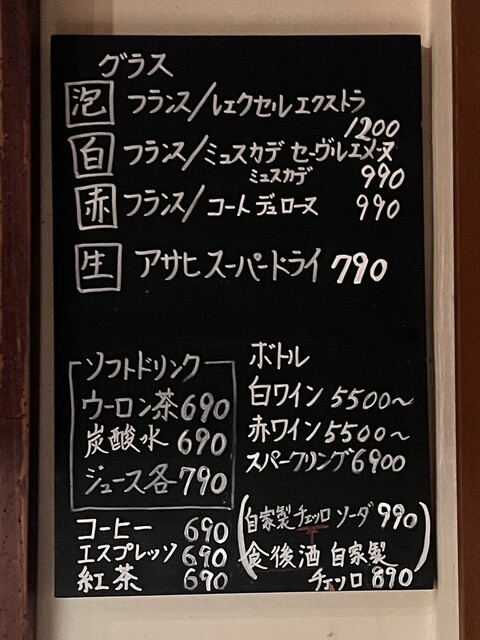 グラス
泡 フランス/レエクセルエクストラ
1200
白 フランス/ミュスカデ セーヴルエメーヌ
ミュスカデ 990
赤 フランス/コートデュローヌ 990
生 アサヒスーパードライ 790
ソフトドリンク
ウーロン茶 690
炭酸水 690
ジュース各 790
コーヒー 690
エスプレッソ 690
紅茶 690
ボトル
白ワイン 5500～
赤ワイン 5500～
スパークリング 6900
(自家製チェッロソーダ 990)
食後酒 自家製
チェッロ 890